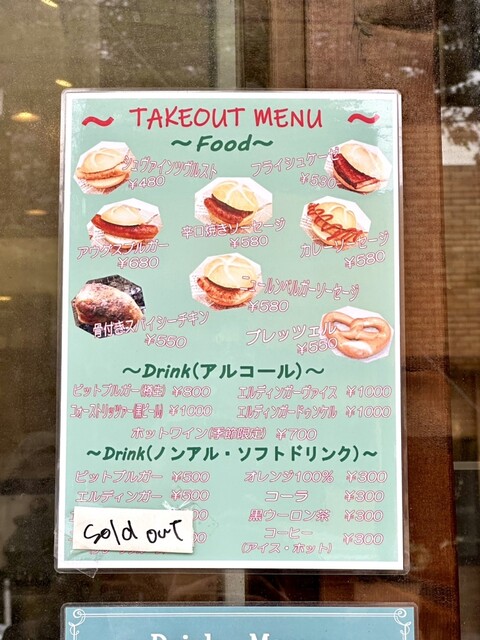 ～ TAKEOUT MENU ～
～Food～
シュヴァインツヴルスト
¥480
フライシュケーゼ
¥530
アウグスブルガー
¥680
辛口焼きソーセージ
¥580
カレーソーセージ
¥580
ニュールンベルガーソーセージ
¥580
骨付きスパイシーチキン
¥550
ブレッツェル
¥530
～Drink(アルコール)～
ビットブルガー(樽生) ¥800 エルディンガーヴァイス ¥1000
ケストリッツァー(黒ビール) ¥1000 エルディンガードゥンケル ¥1000
ホットワイン(季節限定) ¥700
～Drink(ノンアル・ソフトドリンク)～
ビットブルガー ¥500 オレンジ100% ¥300
エルディンガー ¥500 コーラ ¥300
黒ウーロン茶 ¥300
コーヒー ¥300
(アイス・ホット)
Sold out